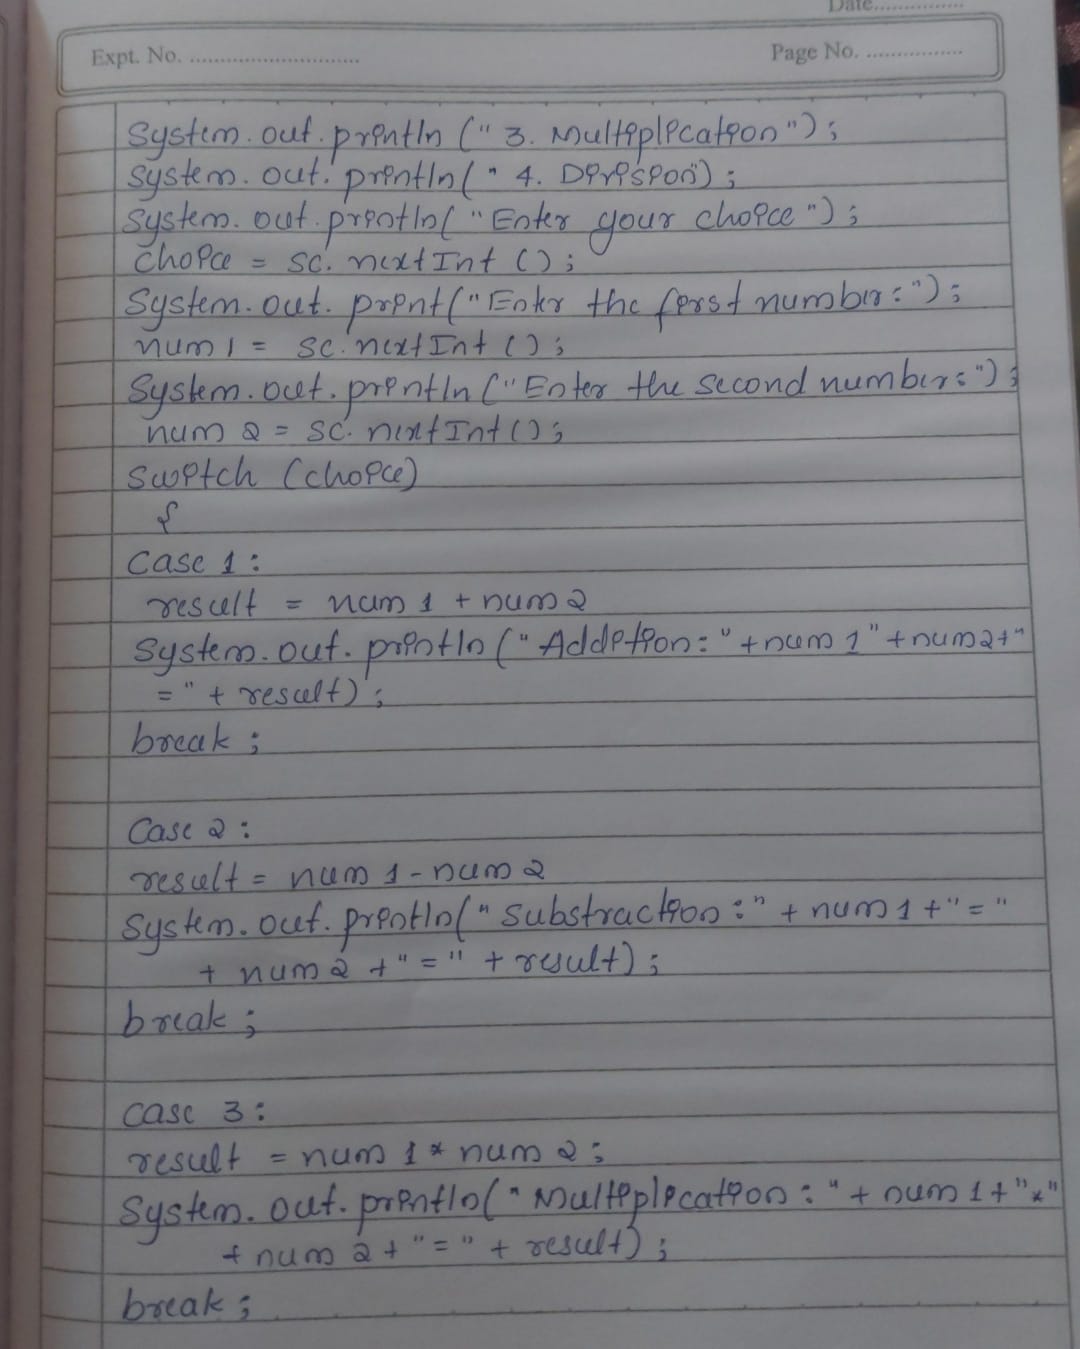 Date................
Expt. No. ..............................
Page No. .................
System.out.println (" 3. Multiplication");
System.out.println(" 4. Division");
System.out.println("Enter your choice");
choice = sc.nextInt ();
System.out.print("Enter the first number:");
num1 = sc.nextInt ();
System.out.println ("Enter the second number:");
num 2 = sc.nextInt ();
switch (choice)
{
case 1:
result = num 1 + num 2
System.out.println (" Addition: "+num 1"+num2+"
=" + result);
break;
Case 2:
result = num 1 - num 2
System.out.println(" Substraction:" + num1 +"="
+ num 2 +" = " + result);
break;
case 3:
result = num 1 * num 2;
System.out.println(" Multiplication: " + num 1+"*"
+ num 2 + " = " + result);
break;